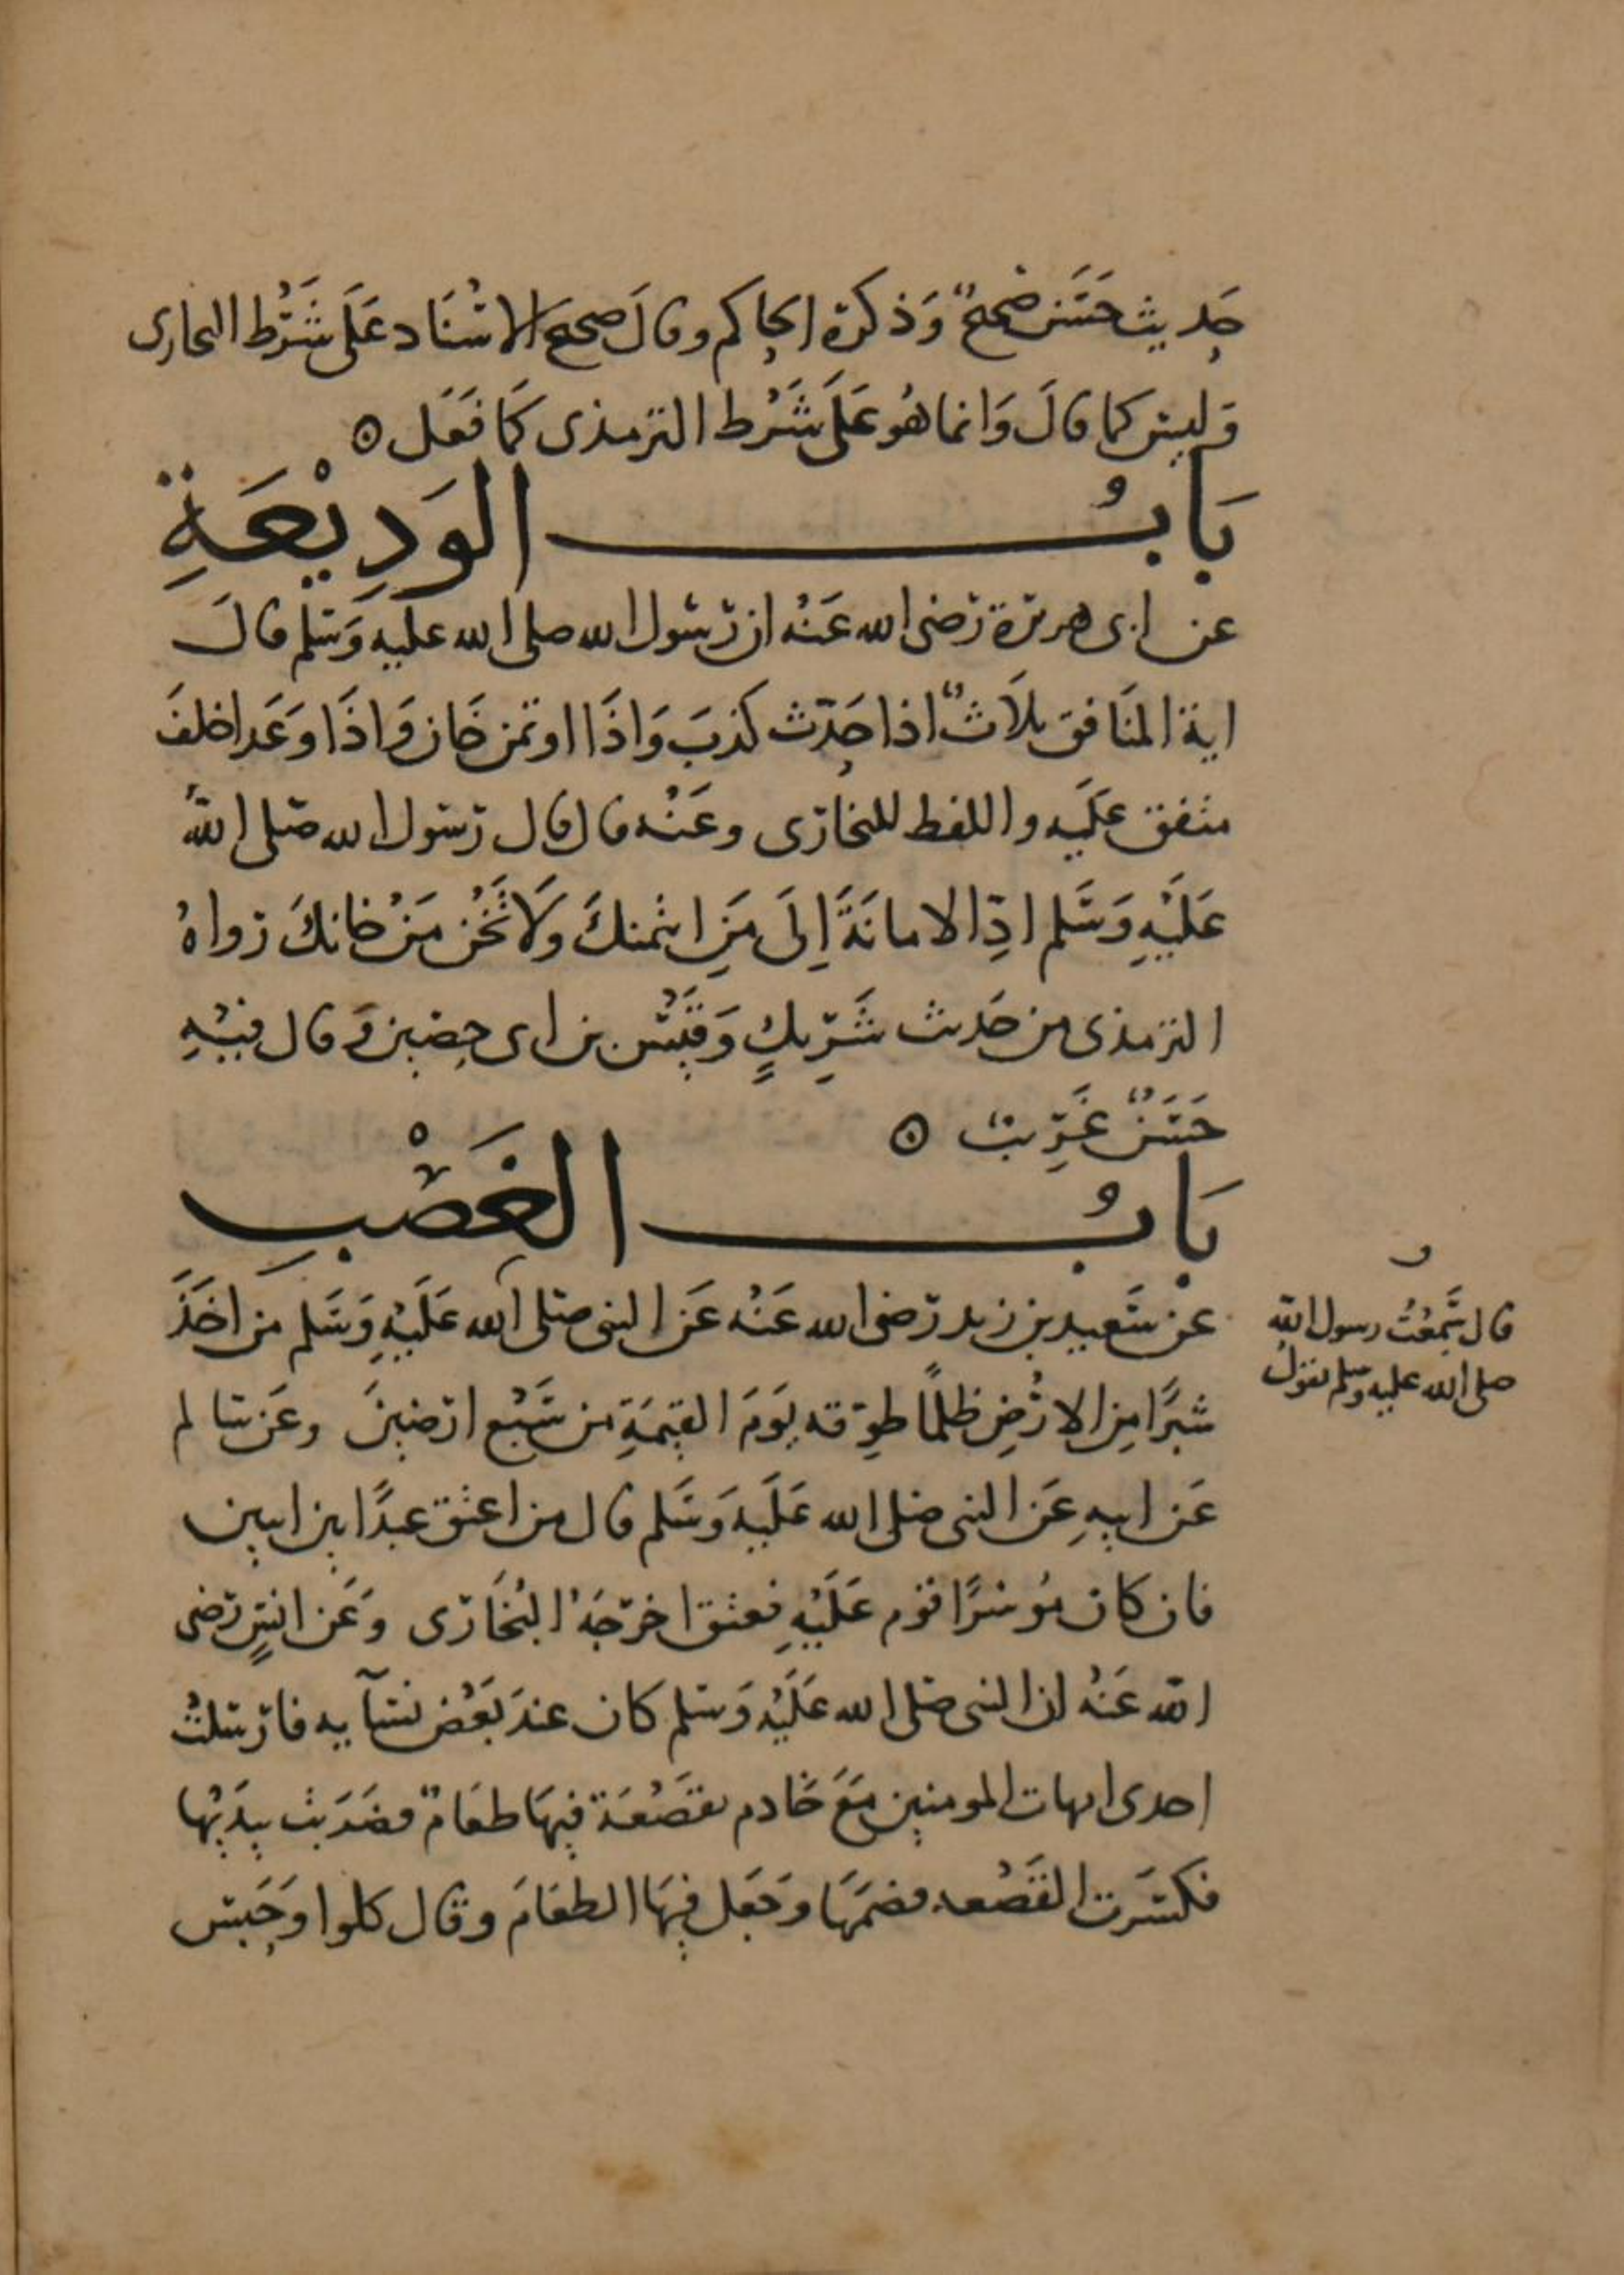 حَديث حَسَن صحيحٌ وَذكره الحاكم وقالَ صحيح الاسْنَاد عَلَى شَرْط البخارى
وَليس كما قالَ وَانما هُو عَلَى شَرْط الترمذى كَما فَعَل ه
بَابُ الوَدِيْعَةِ
عن ابى هريرة رَضى الله عَنْه ان رَسُول الله صلى الله عليه وَسَلم قالَ
اية المنَافق ثلاَثٌ اذا حَدّث كَذبَ وَاذَا اوتمن خَان وَاذَا وَعَد اخلفَ
متفق عَلَيه واللفظ للبخارى وعَنْه قال قال رَسُول الله صَلى اللهُ
عَلَيْهِ وَسَلم ادِّ الامانَةَ اِلَى مَنِ ائتمنكَ وَلَا تَخُن مَنْ خانكَ رَواهُ
الترمذى من حَديث شَرِيكٍ وَقَيْس بن ابى حصين وَقال فيْهِ
حَسَنٌ غَرِيبٌ ه
بَابُ الغَصْبِ
عَن سَعيد بن زيد رَضى الله عَنْه عَن النبى صَلى الله عَلَيْهِ وَسَلم من اخَذَ
شبرًا مِن الارْضِ ظلمًا طوِّقه يَوَمَ القيمَةِ من سَبْع ارَضينَ وعَن سَالم
عَن ابيهِ عَن النبى صَلى الله عَلَيه وَسَلم قال من اعتق عَبدًا بين اثنين
فان كان مُوسرًا قوم عَلَيْهِ فعتق اخرَجَهُ البُخَارَى وَعَن انسٍ رَضى
الله عَنْهُ ان النبى صَلى الله عَلَيْه وَسَلم كان عندَ بَعْض نسَآيه فارسَلتْ
احدى امهات المومنين مَعَ خَادم بقَصْعَة فيهَا طعَامٌ فضَرَبت بيدَيْها
فكسَرت القَصْعه فضمّهَا وَجَعَل فيهَا الطعَامَ وقال كلوا وَحَبس
قال سَمعْتُ رسول الله
صلى الله عليه وسلم يقولُ